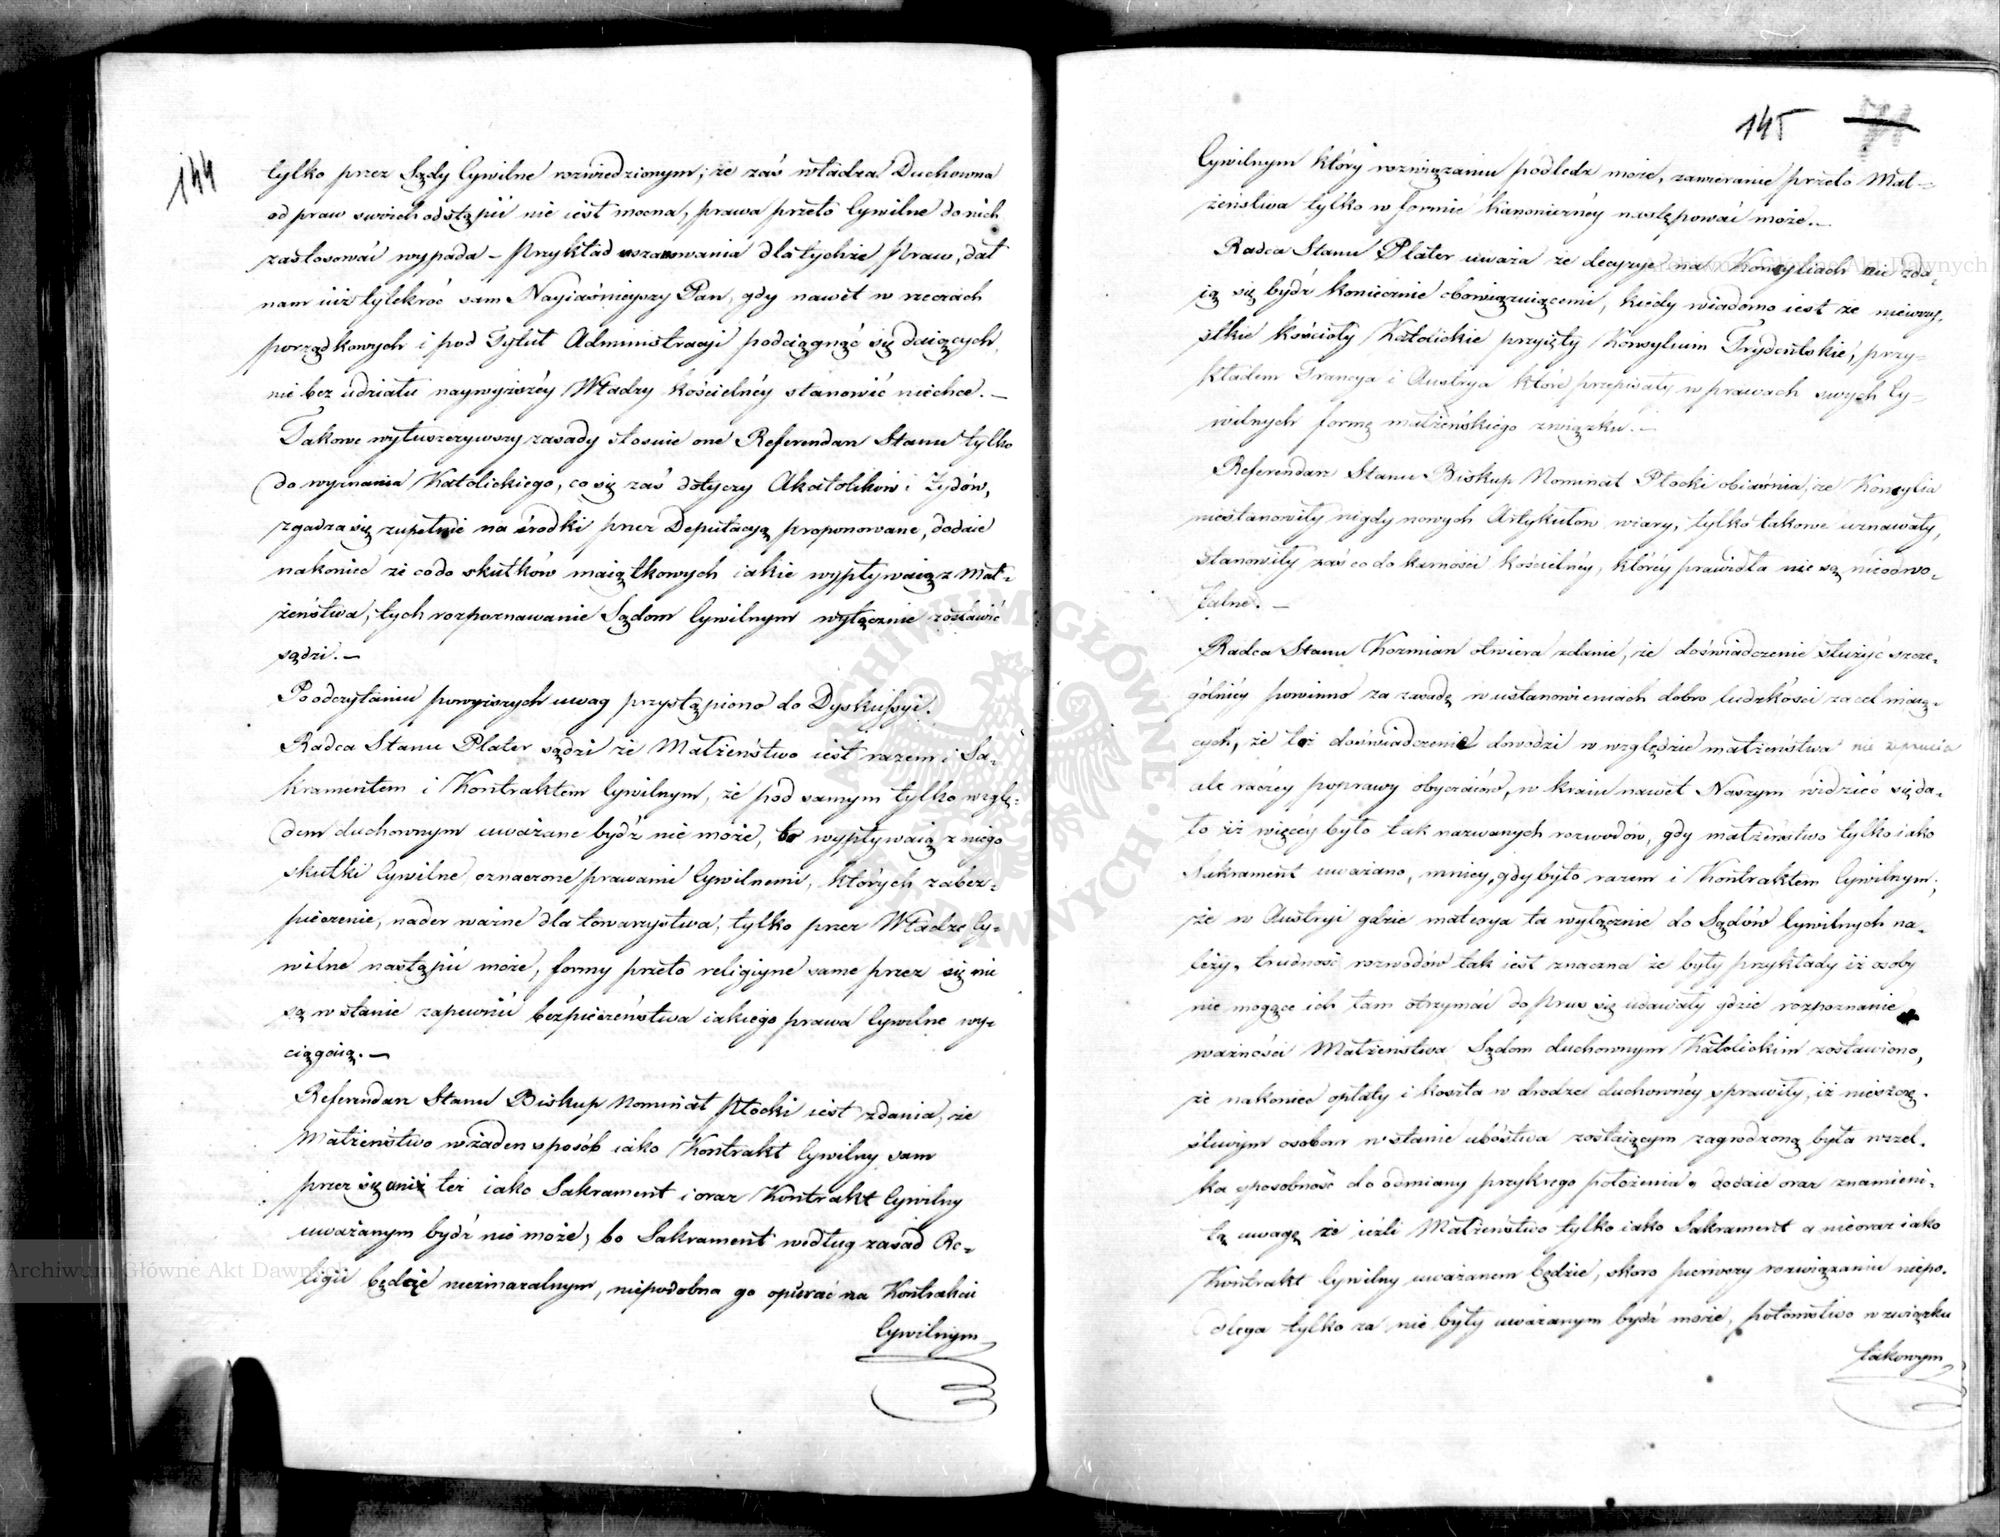 144
tylko przez Sądy Cywilne rozwiedzionym; że zaś władza Duchowna
od praw swoich odstąpić nie iest mocna, prawa przeto Cywilne do nich
zastosować wypada – Przykład uszanowania dla tychże Praw, dał
nam iuż tylekroć sam Nayiaśnieyszy Pan, gdy nawet w rzeczach
porządkowych i pod Tytuł Administracyi podciągnąć się daiących,
nic bez udziału naywyższéy Władzy Kościelnéy stanowić niechce. –
Takowe wyłuszczywszy zasady stosuie one Referendarz Stanu tylko
do wyznania Katolickiego, co się zaś dotyczy Akatolików i Żydów,
zgadza się zupełnie na środki przez Deputacyą proponowane, dodaie
nakoniec że codo skutków maiątkowych iakie wypływaią z Mał-
żeństwa, tych rozpoznawanie Sądom Cywilnym wyłącznie zostawić
sądzi. –
Po odczytaniu powyższych uwag przystąpiono do Dyskussyi.
Radca Stanu Plater sądzi że Małżeństwo iest razem i Sa-
kramentem i Kontraktem Cywilnym, że pod samym tylko wzglę-
dem duchownym uważane bydź nie może, bo wypływaią z niego
skutki Cywilne oznaczone prawami Cywilnemi, których zabez-
pieczenie, nader ważne dla towarzystwa, tylko przez Władze Cy-
wilne nastąpić może, formy przeto religiyne same przez się nie
są w stanie zapewnić bezpieczeństwa iakiego prawa Cywilne wy-
ciągaią. –
Referendarz Stanu Biskup Nominat Płocki iest zdania, że
Małżeństwo wżaden sposób iako Kontrakt Cywilny sam
przez się ani też iako Sakrament i oraz Kontrakt Cywilny
uważanym bydź nie może, bo Sakrament według zasad Re-
ligii będąc niezmazalnym, niepodobna go opierać na Kontrakcie
Cywilnym
145 71
Cywilnym który rozwiązaniu podledz może, zawieranie przeto Mał-
żeństwa tylko w formie kanonicznéy następować może. –
Radca Stanu Plater uważa że decyzye na Konsyliach nie zda-
ią się bydź koniecznie obowiązuiącemi, kiedy wiadomo iest że niewszy-
stkie kościoły Katolickie przyięły Konsylium Trydeńtskie, przy-
kładem Francya i Austrya które przepisały w prawach swych Cy-
wilnych formę małżeńskiego związku. –
Referendarz Stanu Biskup Nominat Płocki obiaśnia, że Konsylia
niestanowiły nigdy nowych Artykułow wiary, tylko takowe uznawały,
stanowiły zaś co do karności kościelnéy, któréy prawidła nie są nieodwo-
łalne. –
Radca Stanu Kozmian otwiera zdanie, że doświadczenie służyć szcze-
gólniéy powinno za zasadę w ustanowieniach dobro ludzkości za cel maią-
cych, że toż doświadczenie dowodzi w względzie małżeństwa nie zepsucia
ale raczéy poprawy obyczaiów, w kraiu nawet Naszym widzieć się da-
ło iż więcéy było tak nazwanych rozwodów, gdy małżeństwo tylko iako
Sakrament uważano, mniéy, gdy było razem i Kontraktem Cywilnym;
że w Austryi gdzie materya ta wyłącznie do Sądów Cywilnych na-
leży, trudność rozwodów tak iest znaczna że były przykłady iż osoby
nie mogące ich tam otrzymać do Prus się udawały gdzie rozpoznanie
ważności Małżeństwa Sądom duchownym Katolickim zostawiono,
że nakoniec opłaty i koszta w drodze duchownéy sprawiły, iż nieszczę-
śliwym osobom w stanie ubóstwa zostaiącym zagrodzoną była wszel-
ka sposobność do odmiany przykrego położenia, dodaie oraz znamieni-
tą uwagę że ieżli Małżeństwo tylko iako Sakrament a nieoraz iako
Kontrakt Cywilny uważanem będzie, skoro pierwszy rozwiązaniu niepo-
dlega tylko za nie były uważanym bydź może, potomstwo w związku
takowym